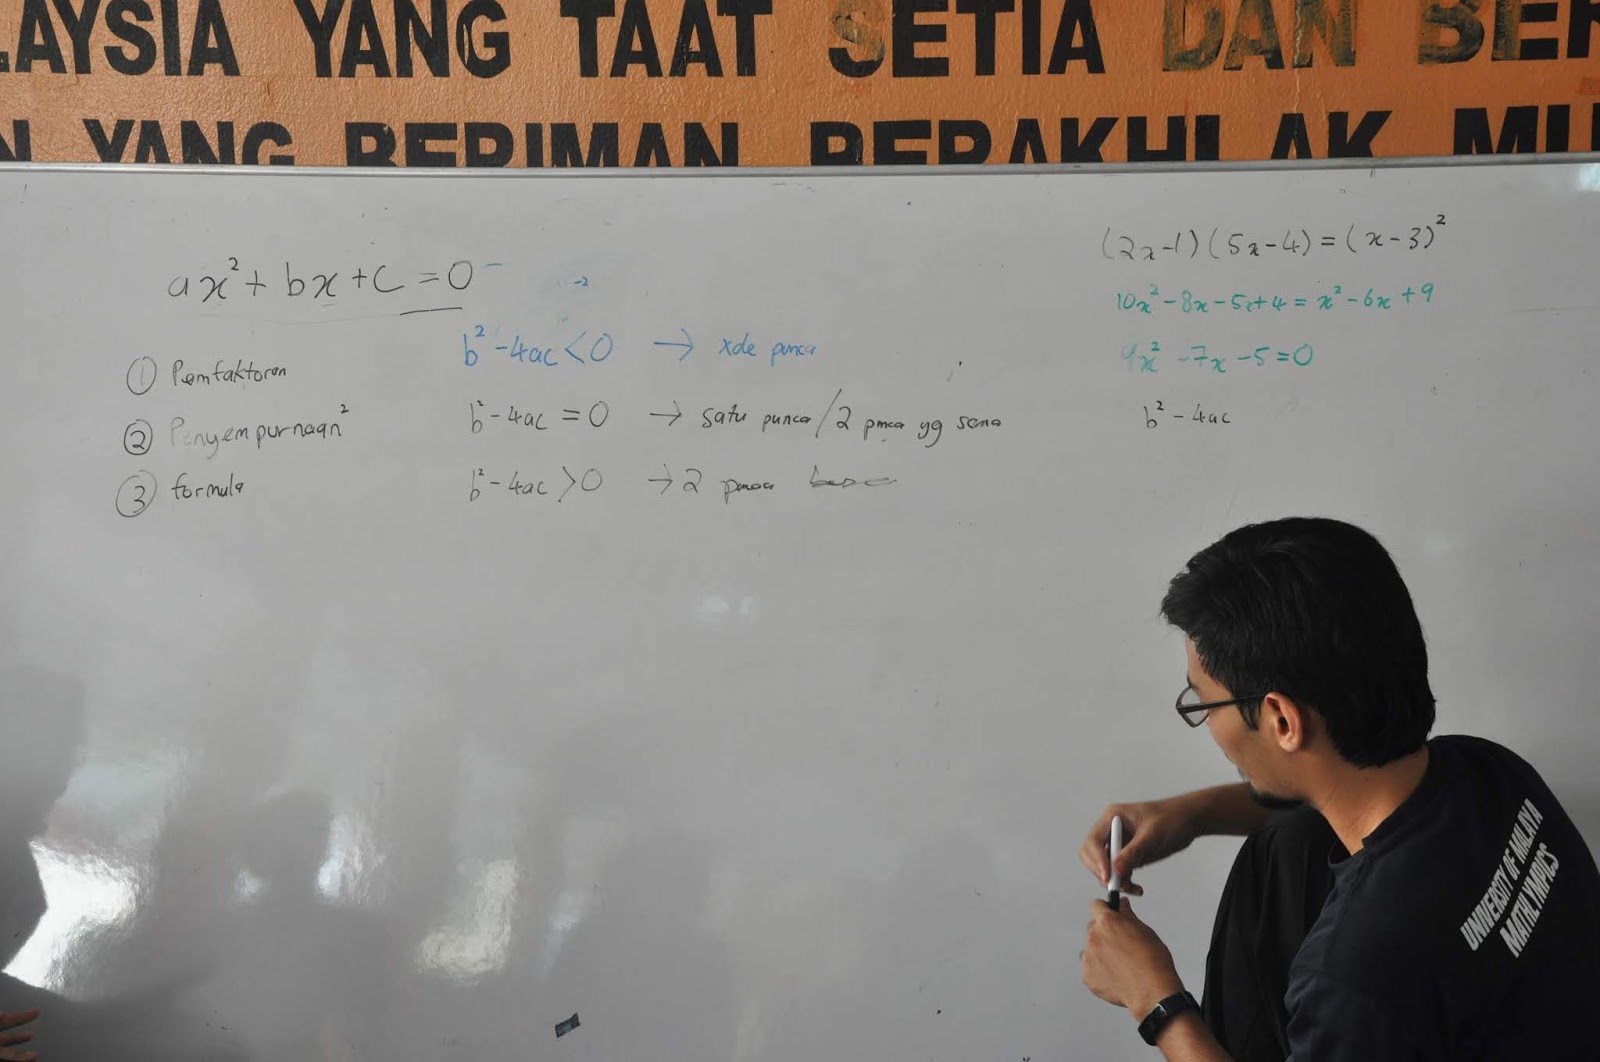 LAYSIA YANG TAAT SETIA DAN BER
N YANG BERIMAN BERAKHLAK MU
ax² + bx + c = 0
-2
b² - 4ac < 0 → xde punca
① Pemfaktoran
b² - 4ac = 0 → satu punca / 2 punca yg sama
② Penyempurnaan²
b² - 4ac > 0 → 2 punca
③ formula
(2x-1)(5x-4) = (x-3)²
10x² - 8x - 5x + 4 = x² - 6x + 9
9x² - 7x - 5 = 0
b² - 4ac
UNIVERSITY OF MALAYA
MATHLYMPICS